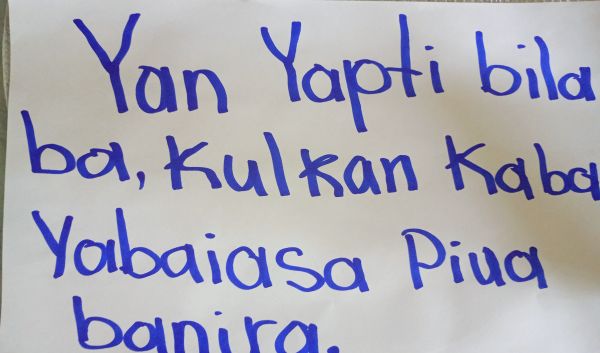 Yan Yapti bila
ba, kulkan kaba
Yabaiasa Piua
banira.